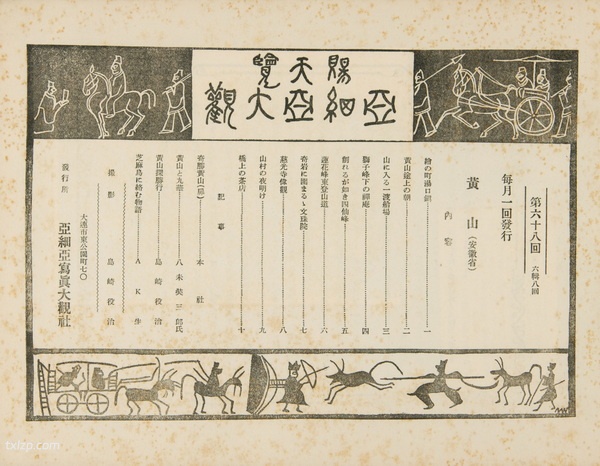 賜天覽
亞細亞大觀
第六十八回 六輯八回
每月一回發行
黄山(安徽省)
內容
繪の町湯口鎮 一
黄山途上の朝 二
山に入る一渡船場 三
獅子峰下の禪庵 四
割れるが如き四仙峰 五
蓮花峰東登山道 六
奇岩に圍まるゝ文珠院 七
慈光寺偉觀 八
山村の夜明け 九
橋上の茶店 十
記事
奇勝黄山(扉) 本社
黄山と九華 八木奘三郎氏
黄山探勝行 島崎役治
芝麻鳥に絡む物語 AK生
撮影 島崎役治
大連市東公園町七〇
發行所 亞細亞寫眞大觀社
txlzp.com